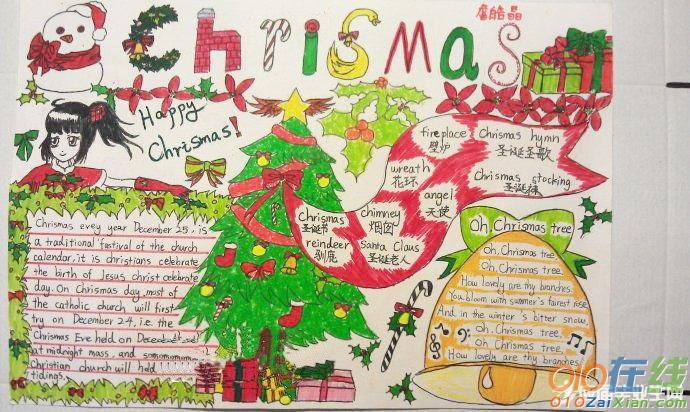 Chrismas
Happy
Chrismas!
fireplace
壁炉
Chrismas hymn
圣诞圣歌
wreath
花环
Chrismas stocking
圣诞袜
angel
天使
Chrismas
圣诞节
chimney
烟囱
reindeer
驯鹿
Santa Claus
圣诞老人
Chrismas evey year December 25. is
a traditional festival of the church
calendar, it is christians celebrate
the birth of Jesus christ celebrate
day. On Chrismas day, most of
the catholic church will first
try on December 24, i.e. the
Chrismas Eve held on December
at midnight mass, and
Christian church will held
tidings.
Oh, Chrismas tree
Oh, Chrismas tree
Oh, Chrismas tree,
How lovely are thy branches.
You bloom with summer's fairest rise,
And in the winter's bitter snow,
Oh, Chrismas tree,
Oh, Chrismas tree,
How lovely are thy branches
910在线
910ZaiXian.com